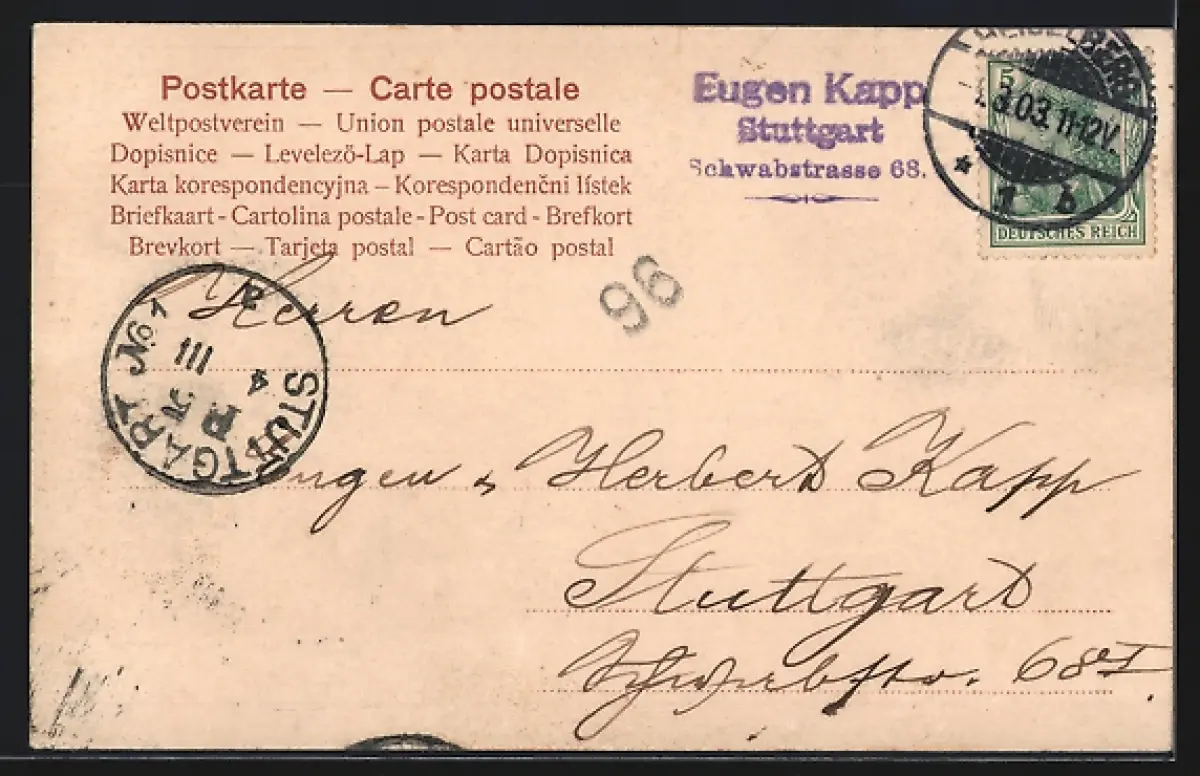 Postkarte — Carte postale
Weltpostverein — Union postale universelle
Dopisnice — Levelező-Lap — Karta Dopisnica
Karta korespondencyjna – Korespondenčni lístek
Briefkaart - Cartolina postale - Post card - Brefkort
Brevkort — Tarjeta postal — Cartão postal
Eugen Kapp
Stuttgart
Schwabstrasse 68.
HEIDELBERG
.3.03. 11-12V.
1 b
5
DEUTSCHES REICH
96
STUTTGART No 1
III
Herren
Eugen & Herbert Kapp
Stuttgart
Schwabstr. 68 I